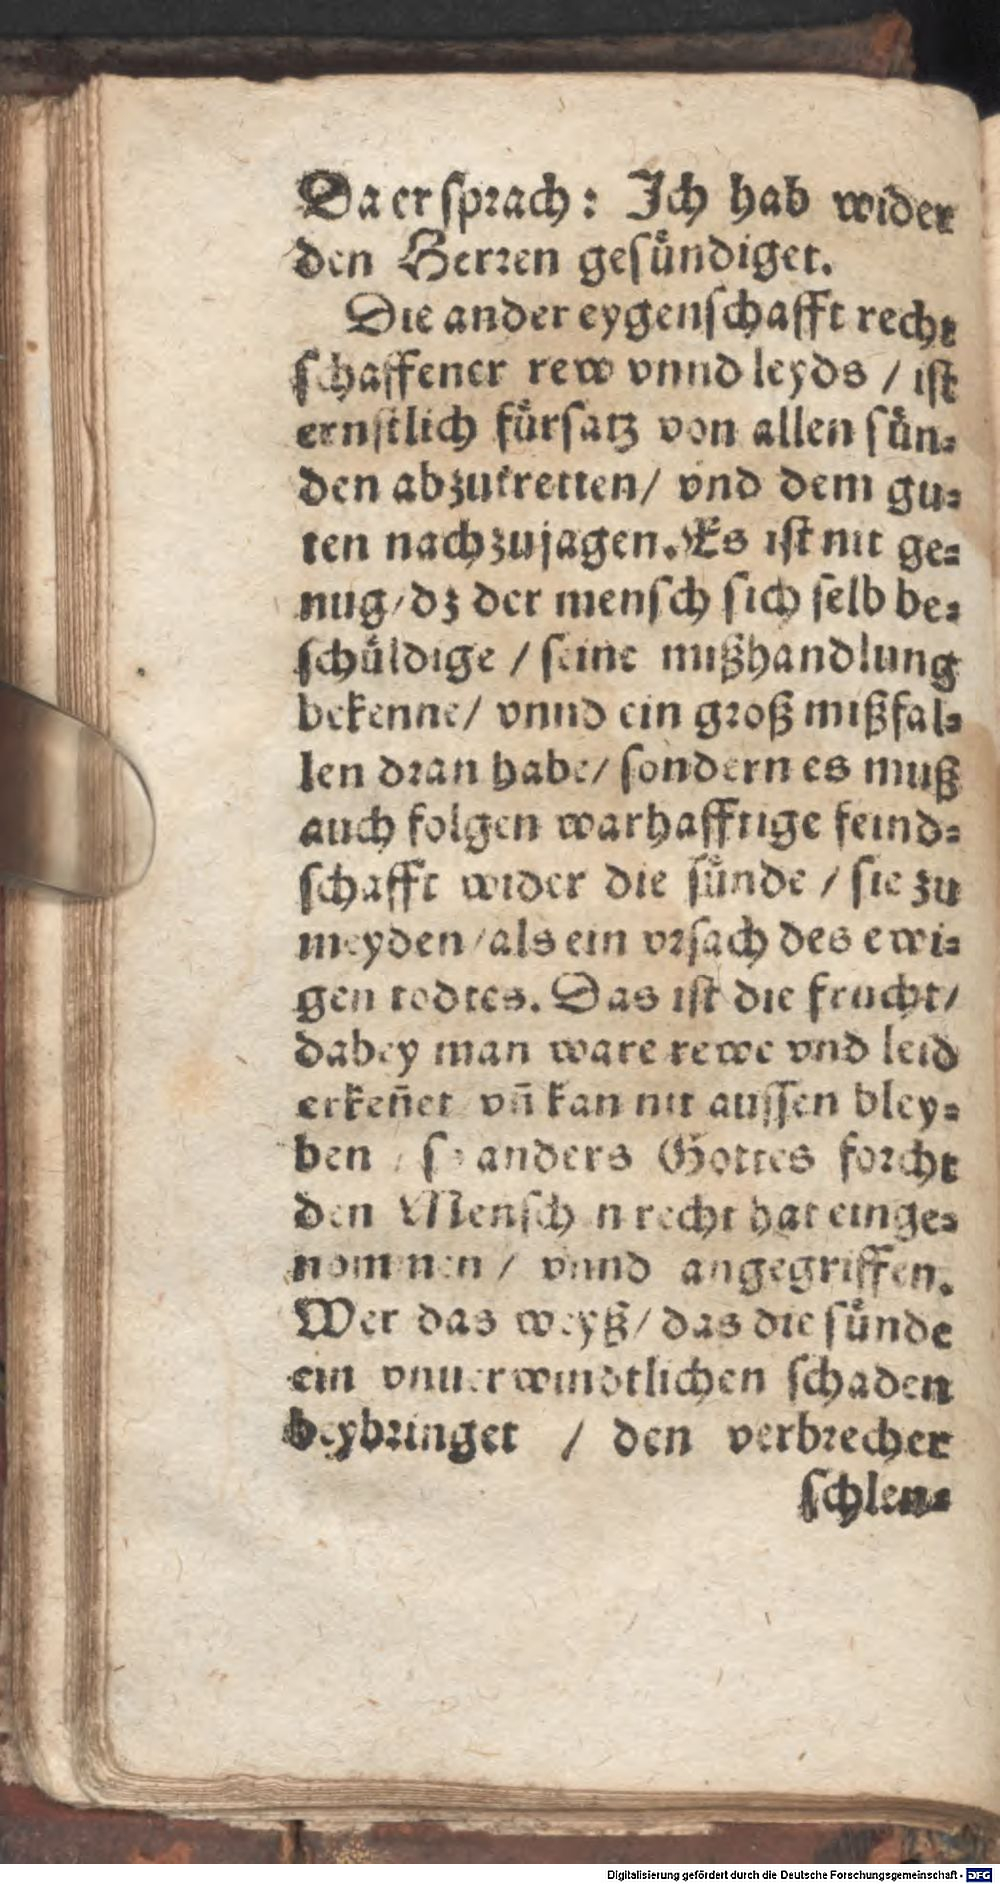 Da er sprach: Ich hab wider
den Herren gesündiget.
Die ander eygenschafft recht
schaffener rew vnnd leyds / ist
ernstlich fürsatz von allen sün-
den abzutretten/ vnd dem gu-
ten nachzujagen. Es ist nit ge-
nug/ dz der mensch sich selb be-
schüldige / seine mißhandlung
bekenne/ vnnd ein groß mißfal-
len dran habe/ sondern es muß
auch folgen warhafftige feind-
schafft wider die sünde / sie zu
meyden/ als ein vrsach des ewi-
gen todtes. Das ist die frucht/
dabey man ware rewe vnd leid
erkeñet vñ kan nit aussen bley-
ben / so anders Gottes forcht
den Menschen recht hat einge-
nommen / vnnd angegriffen.
Wer das weyß/ das die sünde
ein vnuerwindtlichen schaden
beybringet / den verbrecher
schlen-
Digitalisierung gefördert durch die Deutsche Forschungsgemeinschaft - DFG